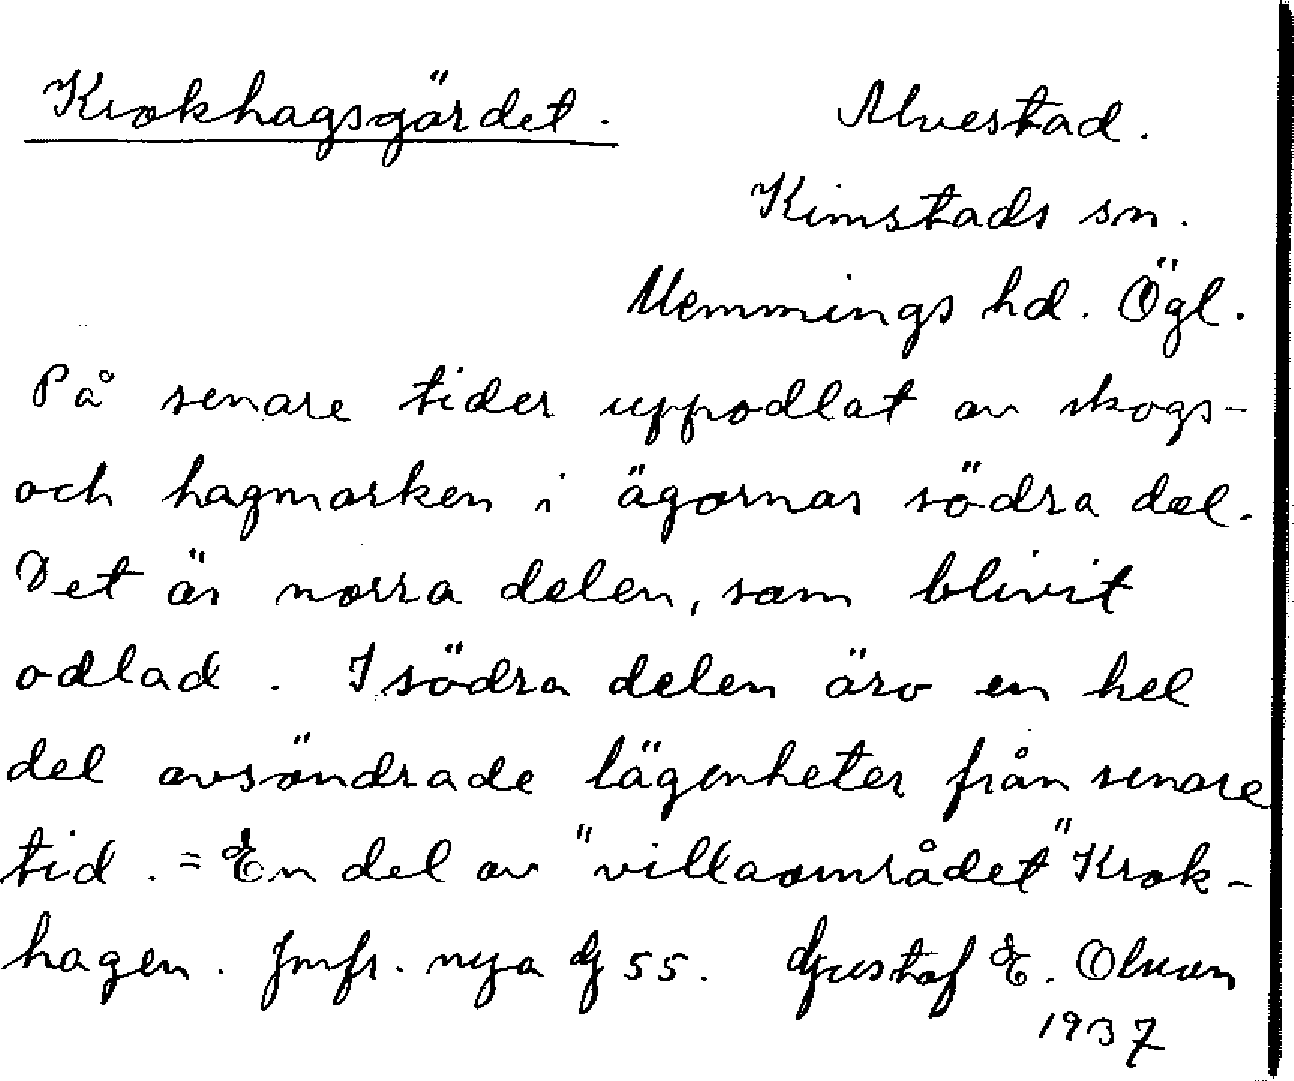 Krokhagsgärdet. Alvestad.
Kimstads sn.
Memmings hd. Ögl.
På senare tider uppodlat av skogs-
och hagmarken i ägornas södra del.
Det är norra delen, som blivit
odlad. I södra delen äro en hel
del avsöndrade lägenheter från senare
tid. = En del av "villaområdet" Krok-
hagen. Jmfr. nya G 55. Gustaf E. Olsson
1937